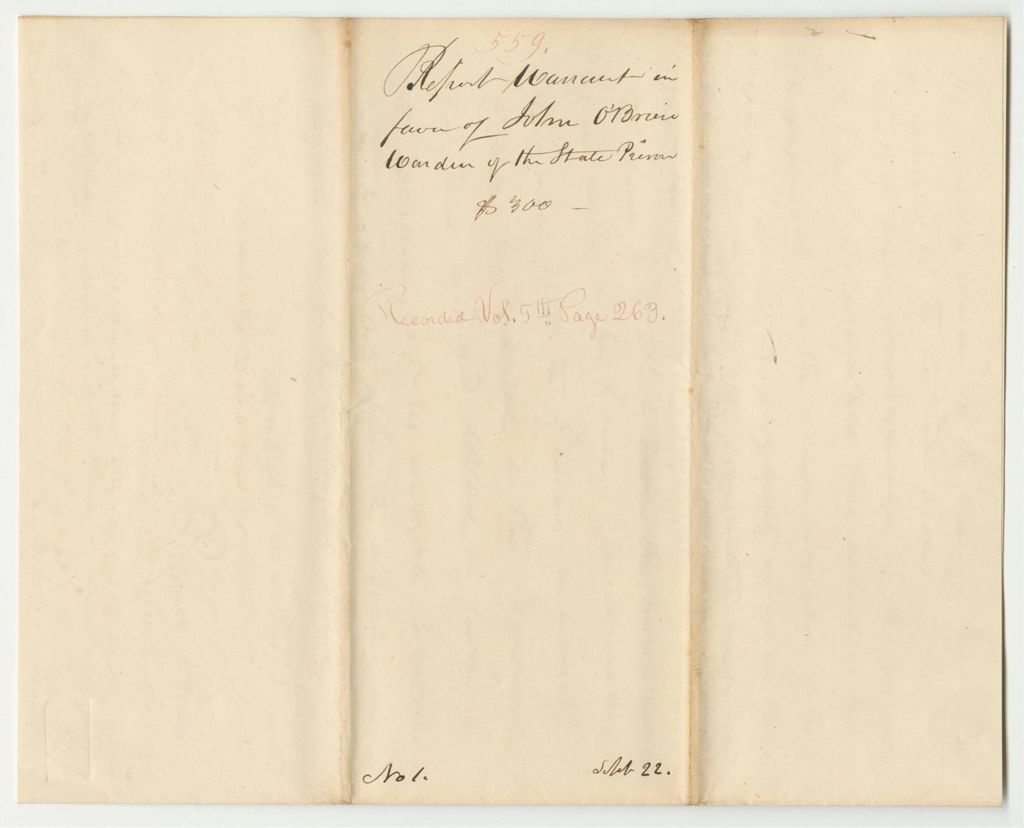 559.
Report Warrant in
favor of John O'Brien
Warden of the State Prison
$300 —
Recorded Vol. 5th Page 263.
No 1.
Sept 22.